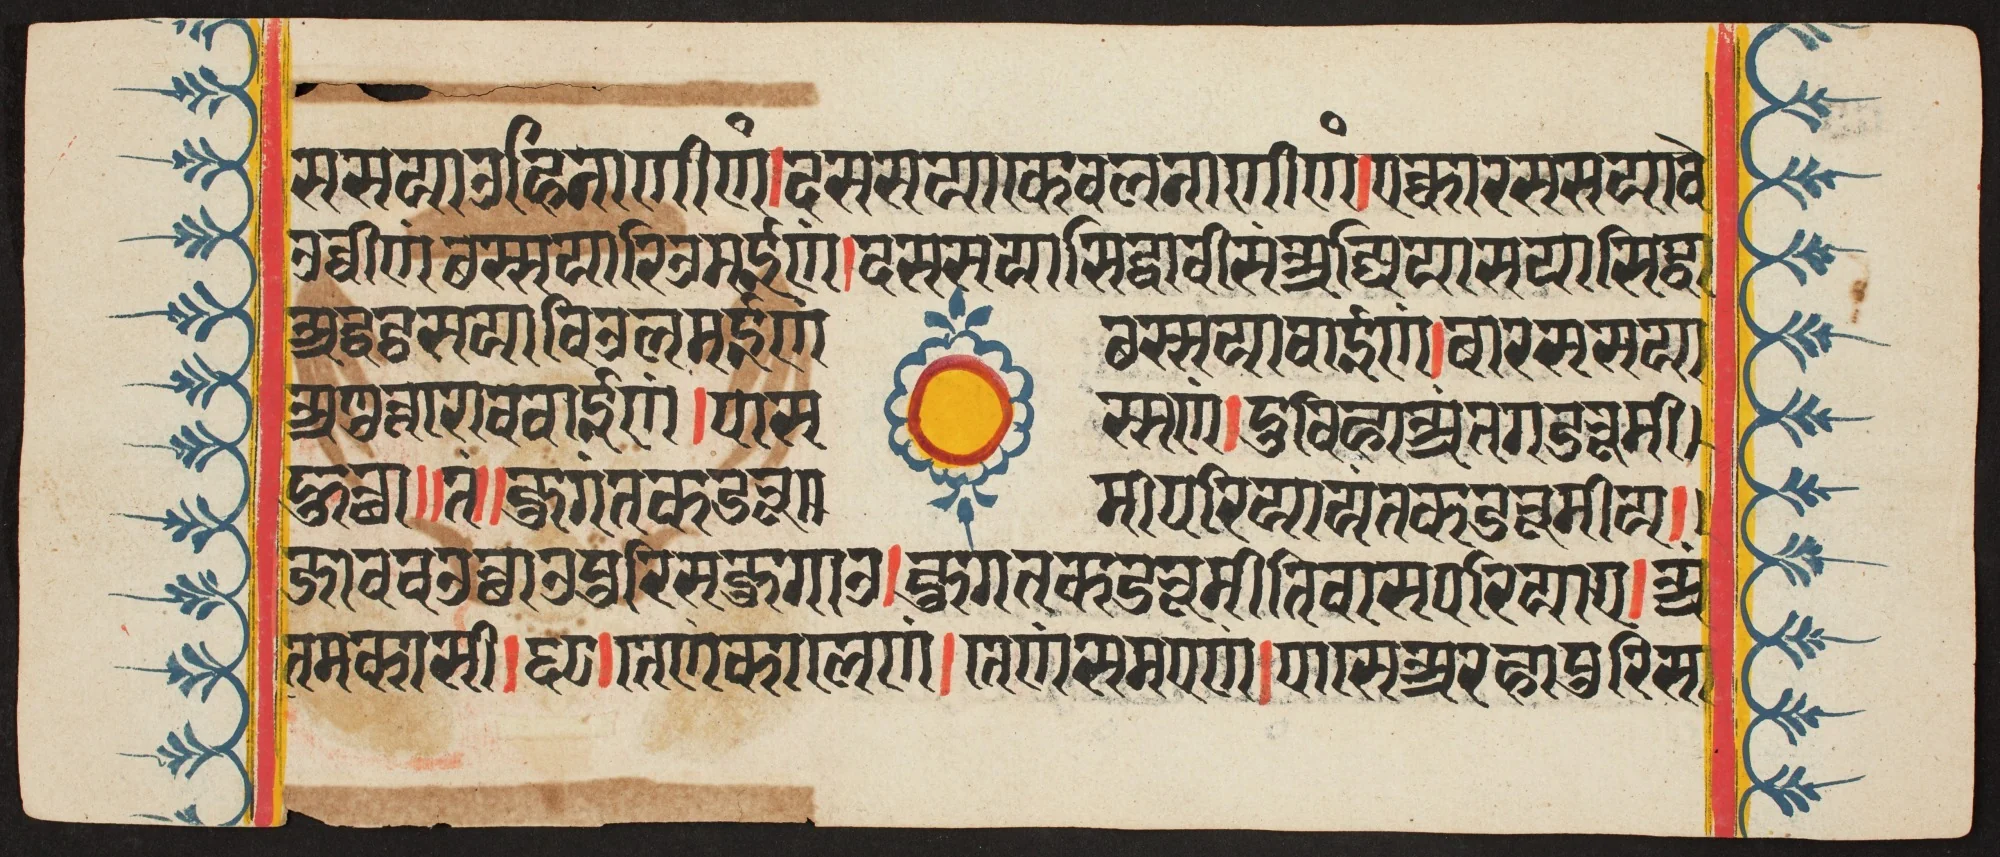 ससयाउहिनाणीणं।दससयाकेवलनाणीणं।एक्कारससयावे
उव्वीणंछस्सयारिउमईणं।दससयासिद्धावीसंअज्जियासयासिद्धा
अद्धट्ठसयाविउलमईणं छस्सयावाईणं।बारससया
अणुत्तरोववाईणं।पास स्सणं।दुविहाअंतगडभूमी।
हुत्था॥तं॥जुगंतकडभू॥ मीपरियायंतकडभूमीय।।
जावचउत्थाउपुरिसजुगाउ।जुगंतकडभूमीतिवासपरियाए।अं
तमकासी।तेणंकालेणं।तेणंसमएणं।पासेअरहापुरिसा